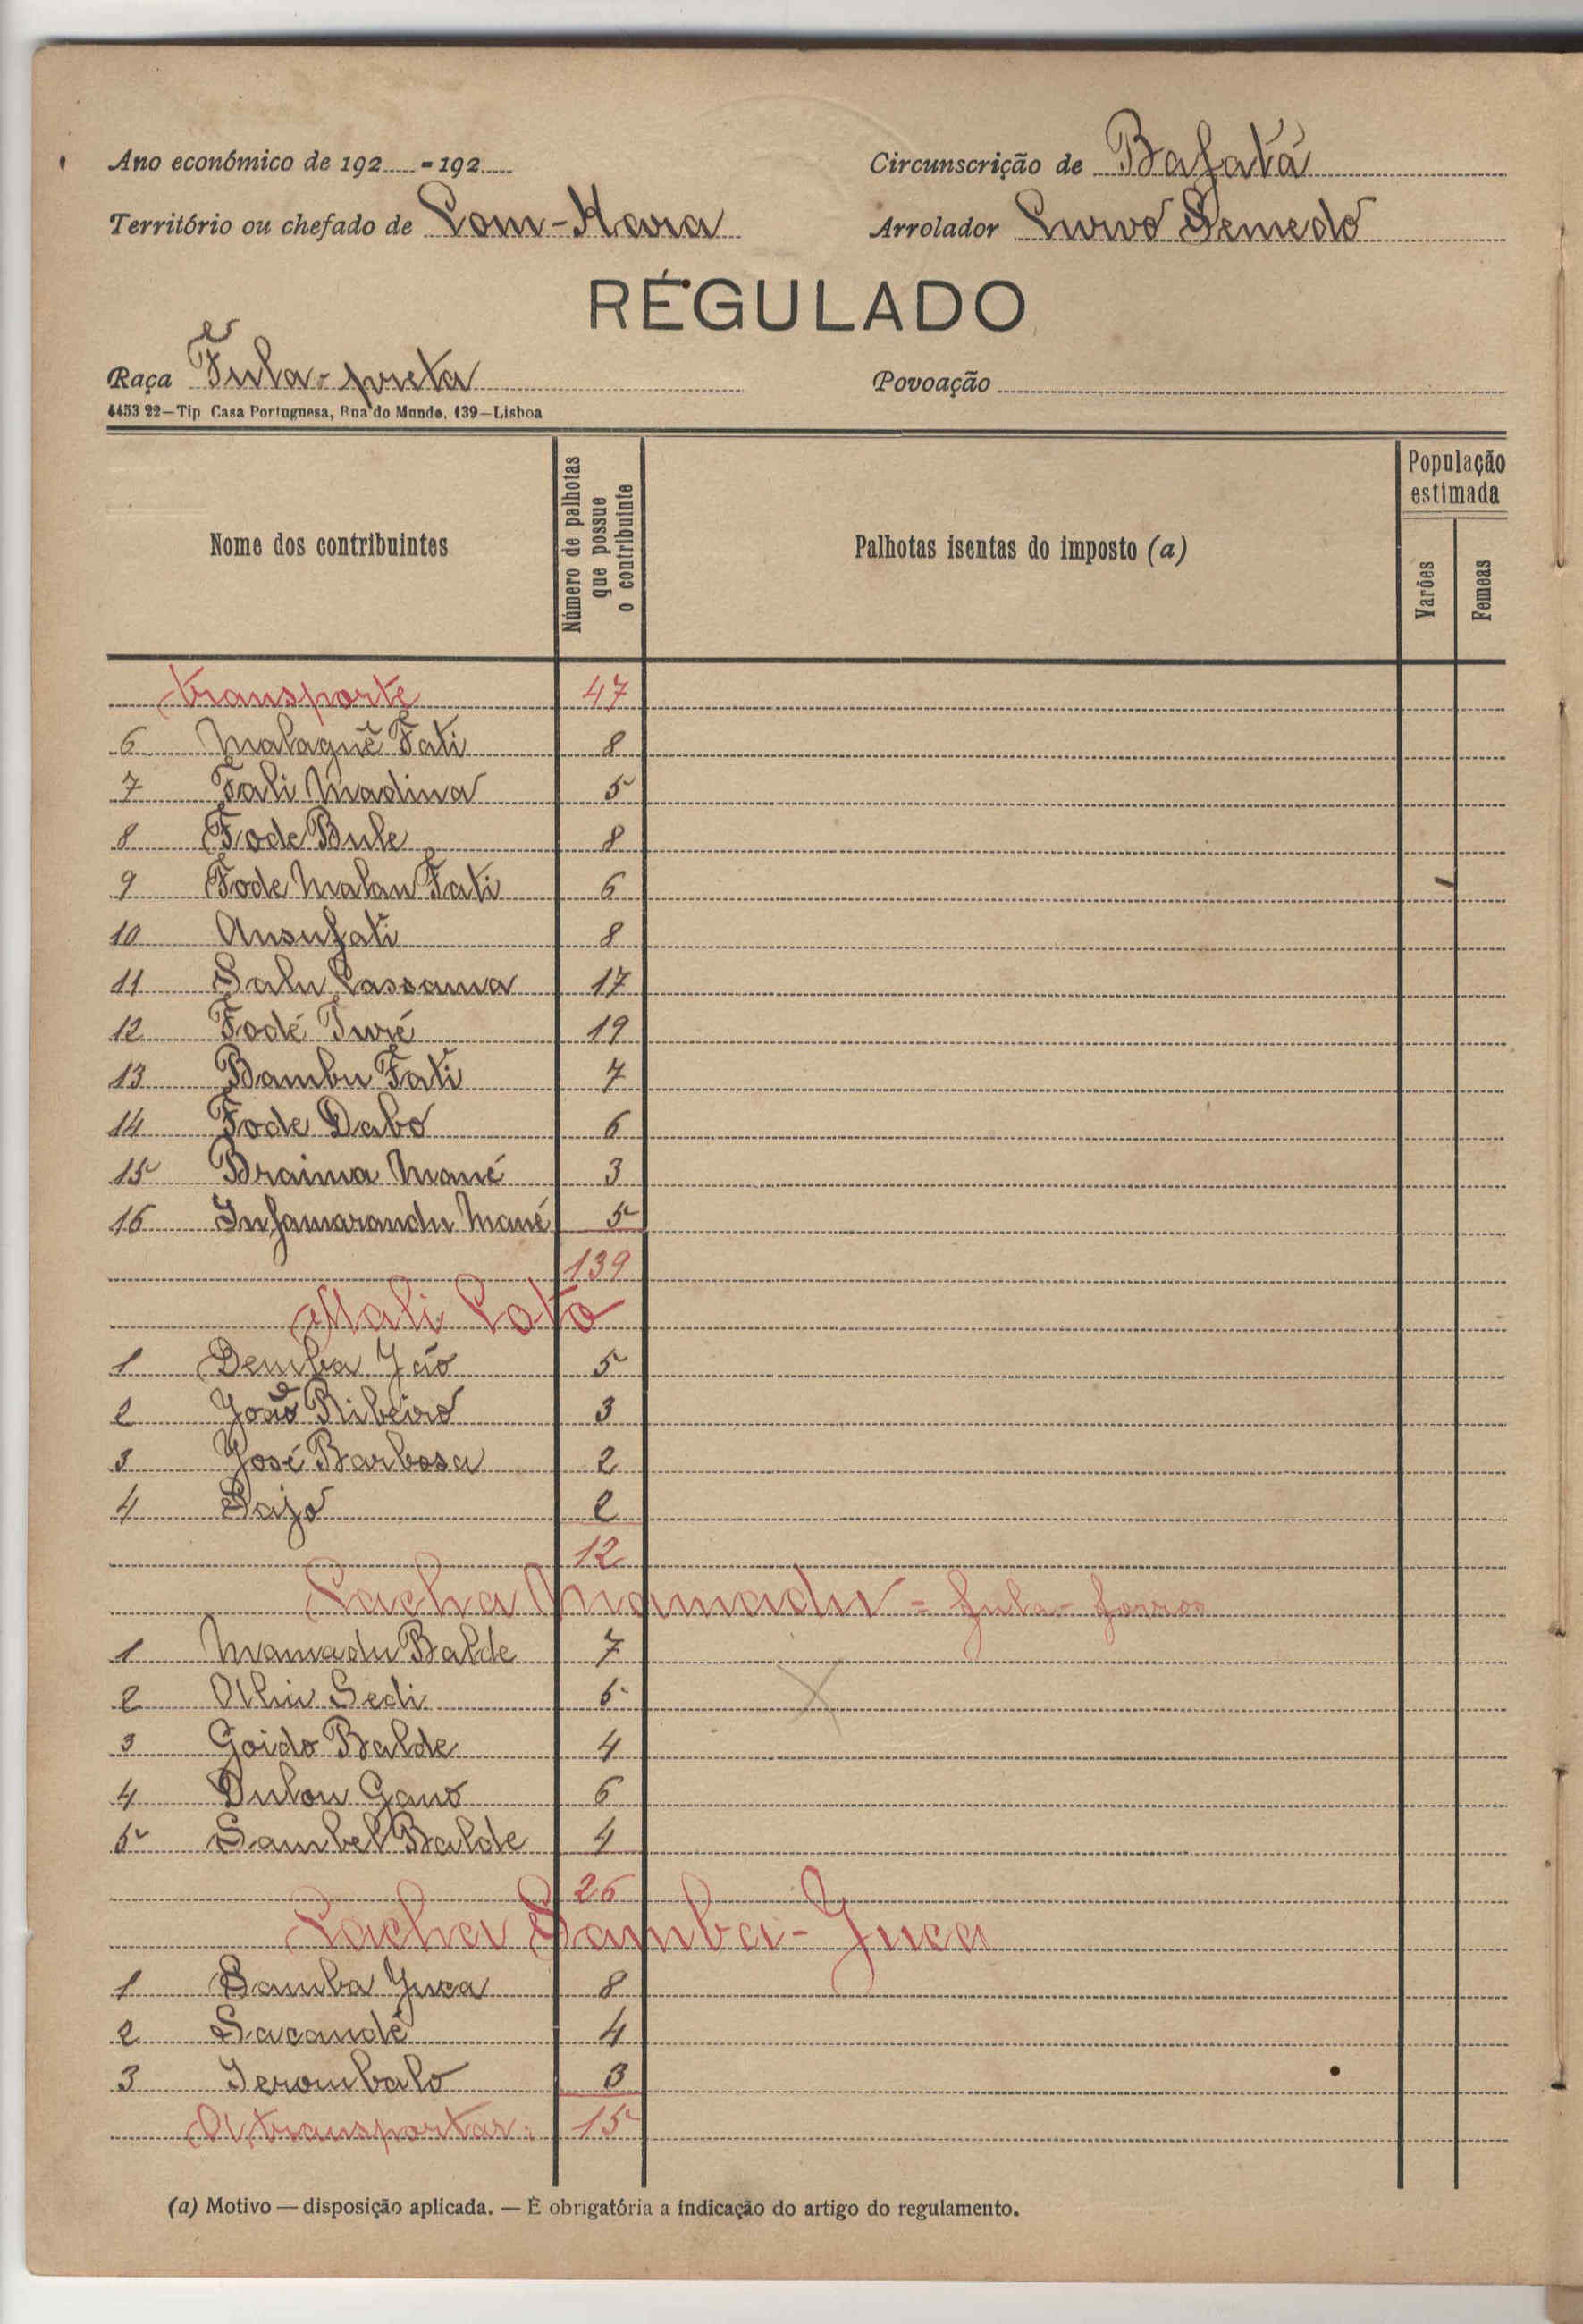 Ano económico de 192 -192
Circunscrição de Bafatá
Território ou chefado de
Arrolador Semedo
RÉGULADO
Raça Fula-preta
Povoação
4453 22—Tip Casa Portuguesa, Rua do Mundo, 139—Lisboa
Nome dos contribuintes
Número de palhotas que possue o contribuinte
Palhotas isentas do imposto (a)
População estimada
Varões
Femeas
transporte 47
6 Malagué Fati 8
7 Fali Madina 5
8 Fode Bule 8
9 Fode Malan Fati 6
10 Ansufati 8
11 Salu Cassama 17
12 Fodé Turé 19
13 Bambu Fati 7
14 Fode Dabo 6
15 Braima Mané 3
16 Infamarandu Mané 5
139
Mali Cota
1 Demba Jáo 5
2 João Ribeiro 3
3 José Barbosa 2
4 Sajo 2
12
Pacha Mamadu = fula-forros
1 Mamadu Balde 7
2 Sedi 5
3 Goido Balde 4
4 Dulou Gano 6
5 Sambel Balde 4
26
Pacha Samba-Juca
1 Samba Juca 8
2 Sacandé 4
3 Jerombalo 3
A transportar: 15
(a) Motivo — disposição aplicada. — É obrigatória a indicação do artigo do regulamento.